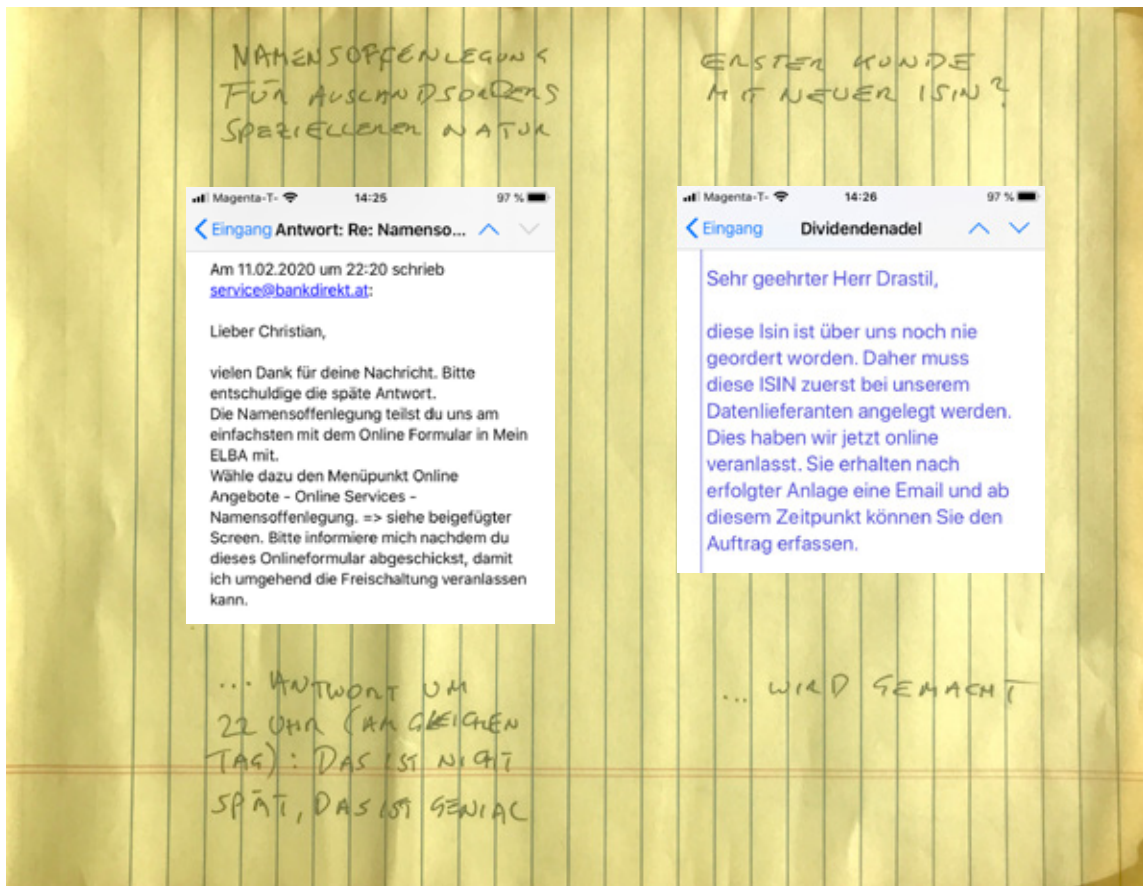 NAMENSOFFENLEGUNG
FÜR AUSLANDSORDERS
SPEZIELLERER NATUR
Magenta-T- 14:25 97 %
Eingang Antwort: Re: Namenso...
Am 11.02.2020 um 22:20 schrieb
service@bankdirekt.at:
Lieber Christian,
vielen Dank für deine Nachricht. Bitte
entschuldige die späte Antwort.
Die Namensoffenlegung teilst du uns am
einfachsten mit dem Online Formular in Mein
ELBA mit.
Wähle dazu den Menüpunkt Online
Angebote - Online Services -
Namensoffenlegung. => siehe beigefügter
Screen. Bitte informiere mich nachdem du
dieses Onlineformular abgeschickst, damit
ich umgehend die Freischaltung veranlassen
kann.
... ANTWORT UM
22 UHR (AM GLEICHEN
TAG): DAS IST NICHT
SPÄT, DAS IST GENIAL
ERSTER KUNDE
MIT NEUER ISIN?
Magenta-T- 14:26 97 %
Eingang Dividendenadel
Sehr geehrter Herr Drastil,
diese Isin ist über uns noch nie
geordert worden. Daher muss
diese ISIN zuerst bei unserem
Datenlieferanten angelegt werden.
Dies haben wir jetzt online
veranlasst. Sie erhalten nach
erfolgter Anlage eine Email und ab
diesem Zeitpunkt können Sie den
Auftrag erfassen.
... WIRD GEMACHT